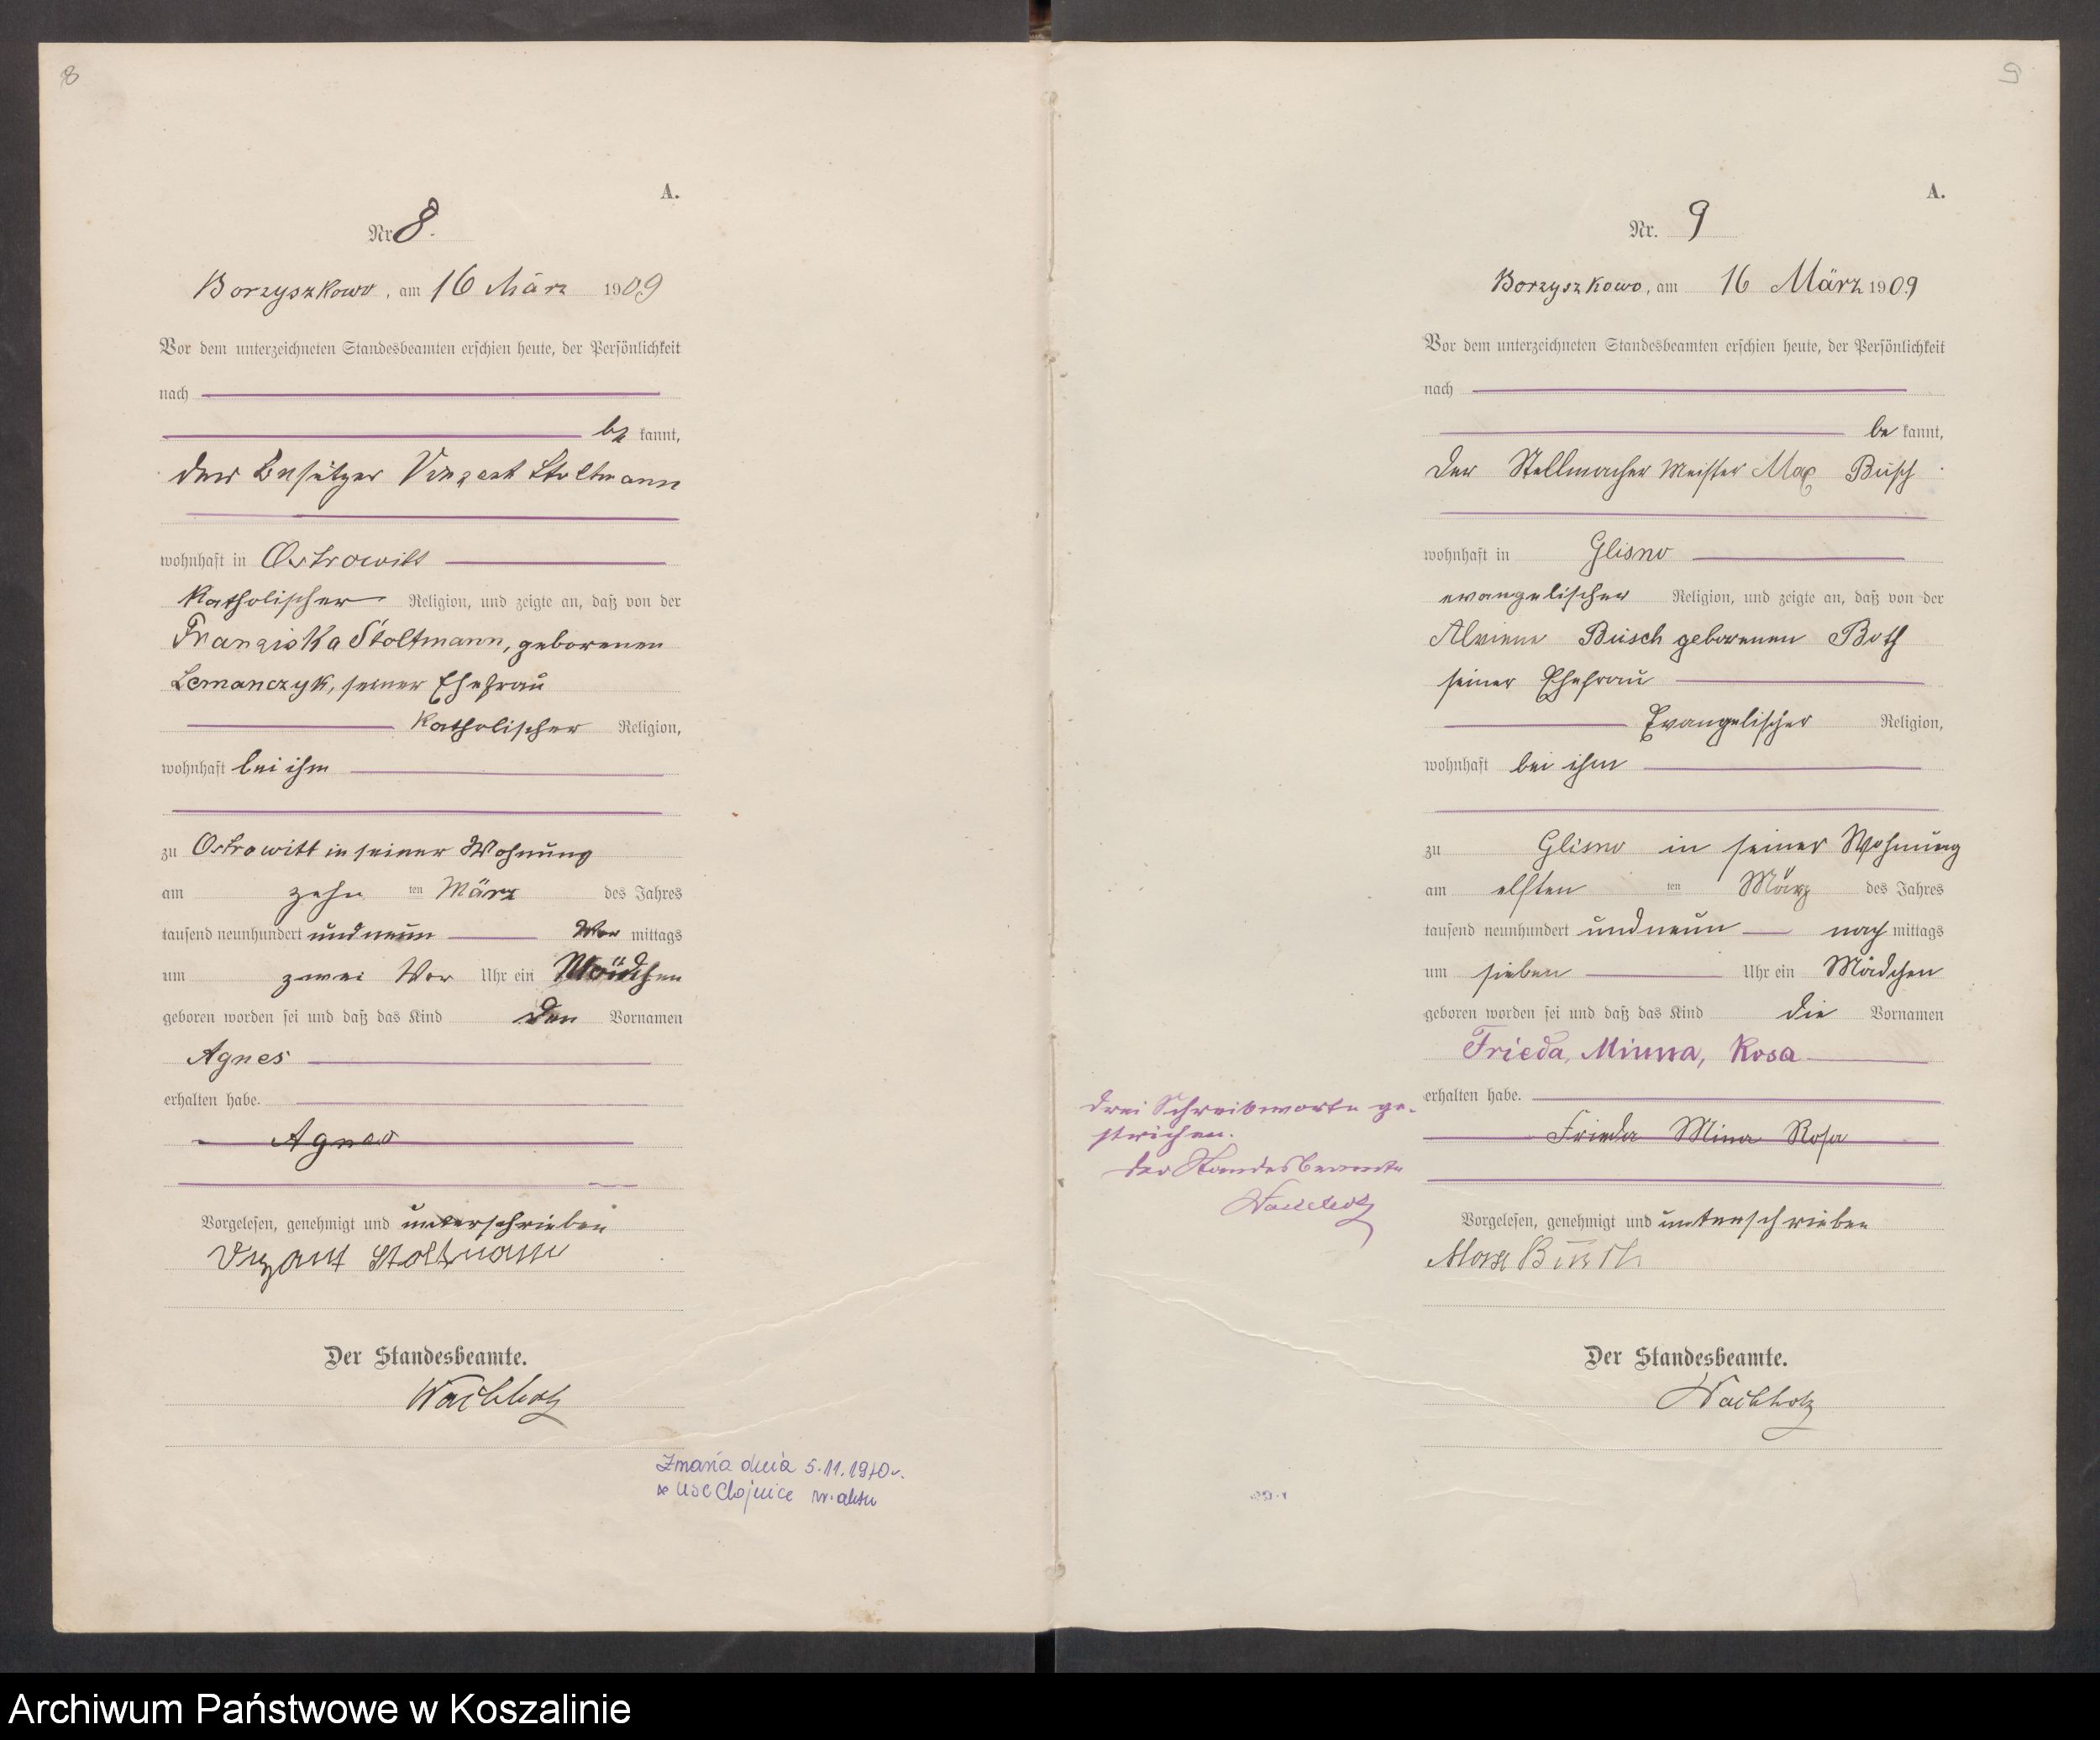 8
A.
Nr. 8.
Borzyszkowo, am 16 März 1909
Vor dem unterzeichneten Standesbeamten erschien heute, der Persönlichkeit
nach
be kannt,
der Besitzer Vinzent Stoltmann
wohnhaft in Ostrowitt
katholischer Religion, und zeigte an, daß von der
Franziska Stoltmann, geborenen
Lemanczyk, seiner Ehefrau
katholischer Religion,
wohnhaft bei ihm
zu Ostrowitt in seiner Wohnung
am zehn ten März des Jahres
tausend neunhundert und neun Vor mittags
um zwei Vor Uhr ein Mädchen
geboren worden sei und daß das Kind den Vornamen
Agnes
erhalten habe.
Agnes
Vorgelesen, genehmigt und unterschrieben
Vinzant Stoltmann
Der Standesbeamte.
Wachholz
Zmarła dnia 5.11.1970 r.
w USC Chojnice nr. aktu
9
A.
Nr. 9
Borzyszkowo, am 16 März 1909
Vor dem unterzeichneten Standesbeamten erschien heute, der Persönlichkeit
nach
be kannt,
der Stellmacher Meister Max Busch
wohnhaft in Glisno
evangelischer Religion, und zeigte an, daß von der
Alwiene Busch geborenen Both
seiner Ehefrau
Evangelischer Religion,
wohnhaft bei ihm
zu Glisno in seiner Wohnung
am elften ten März des Jahres
tausend neunhundert und neun nach mittags
um sieben Uhr ein Mädchen
geboren worden sei und daß das Kind die Vornamen
Frieda, Minna, Rosa
erhalten habe.
Frieda Mina Rosa
drei Schreibworte ge-
strichen.
Der Standesbeamte
Wachholz
Vorgelesen, genehmigt und unterschrieben
Max Busch
Der Standesbeamte.
Wachholz
Archiwum Państwowe w Koszalinie